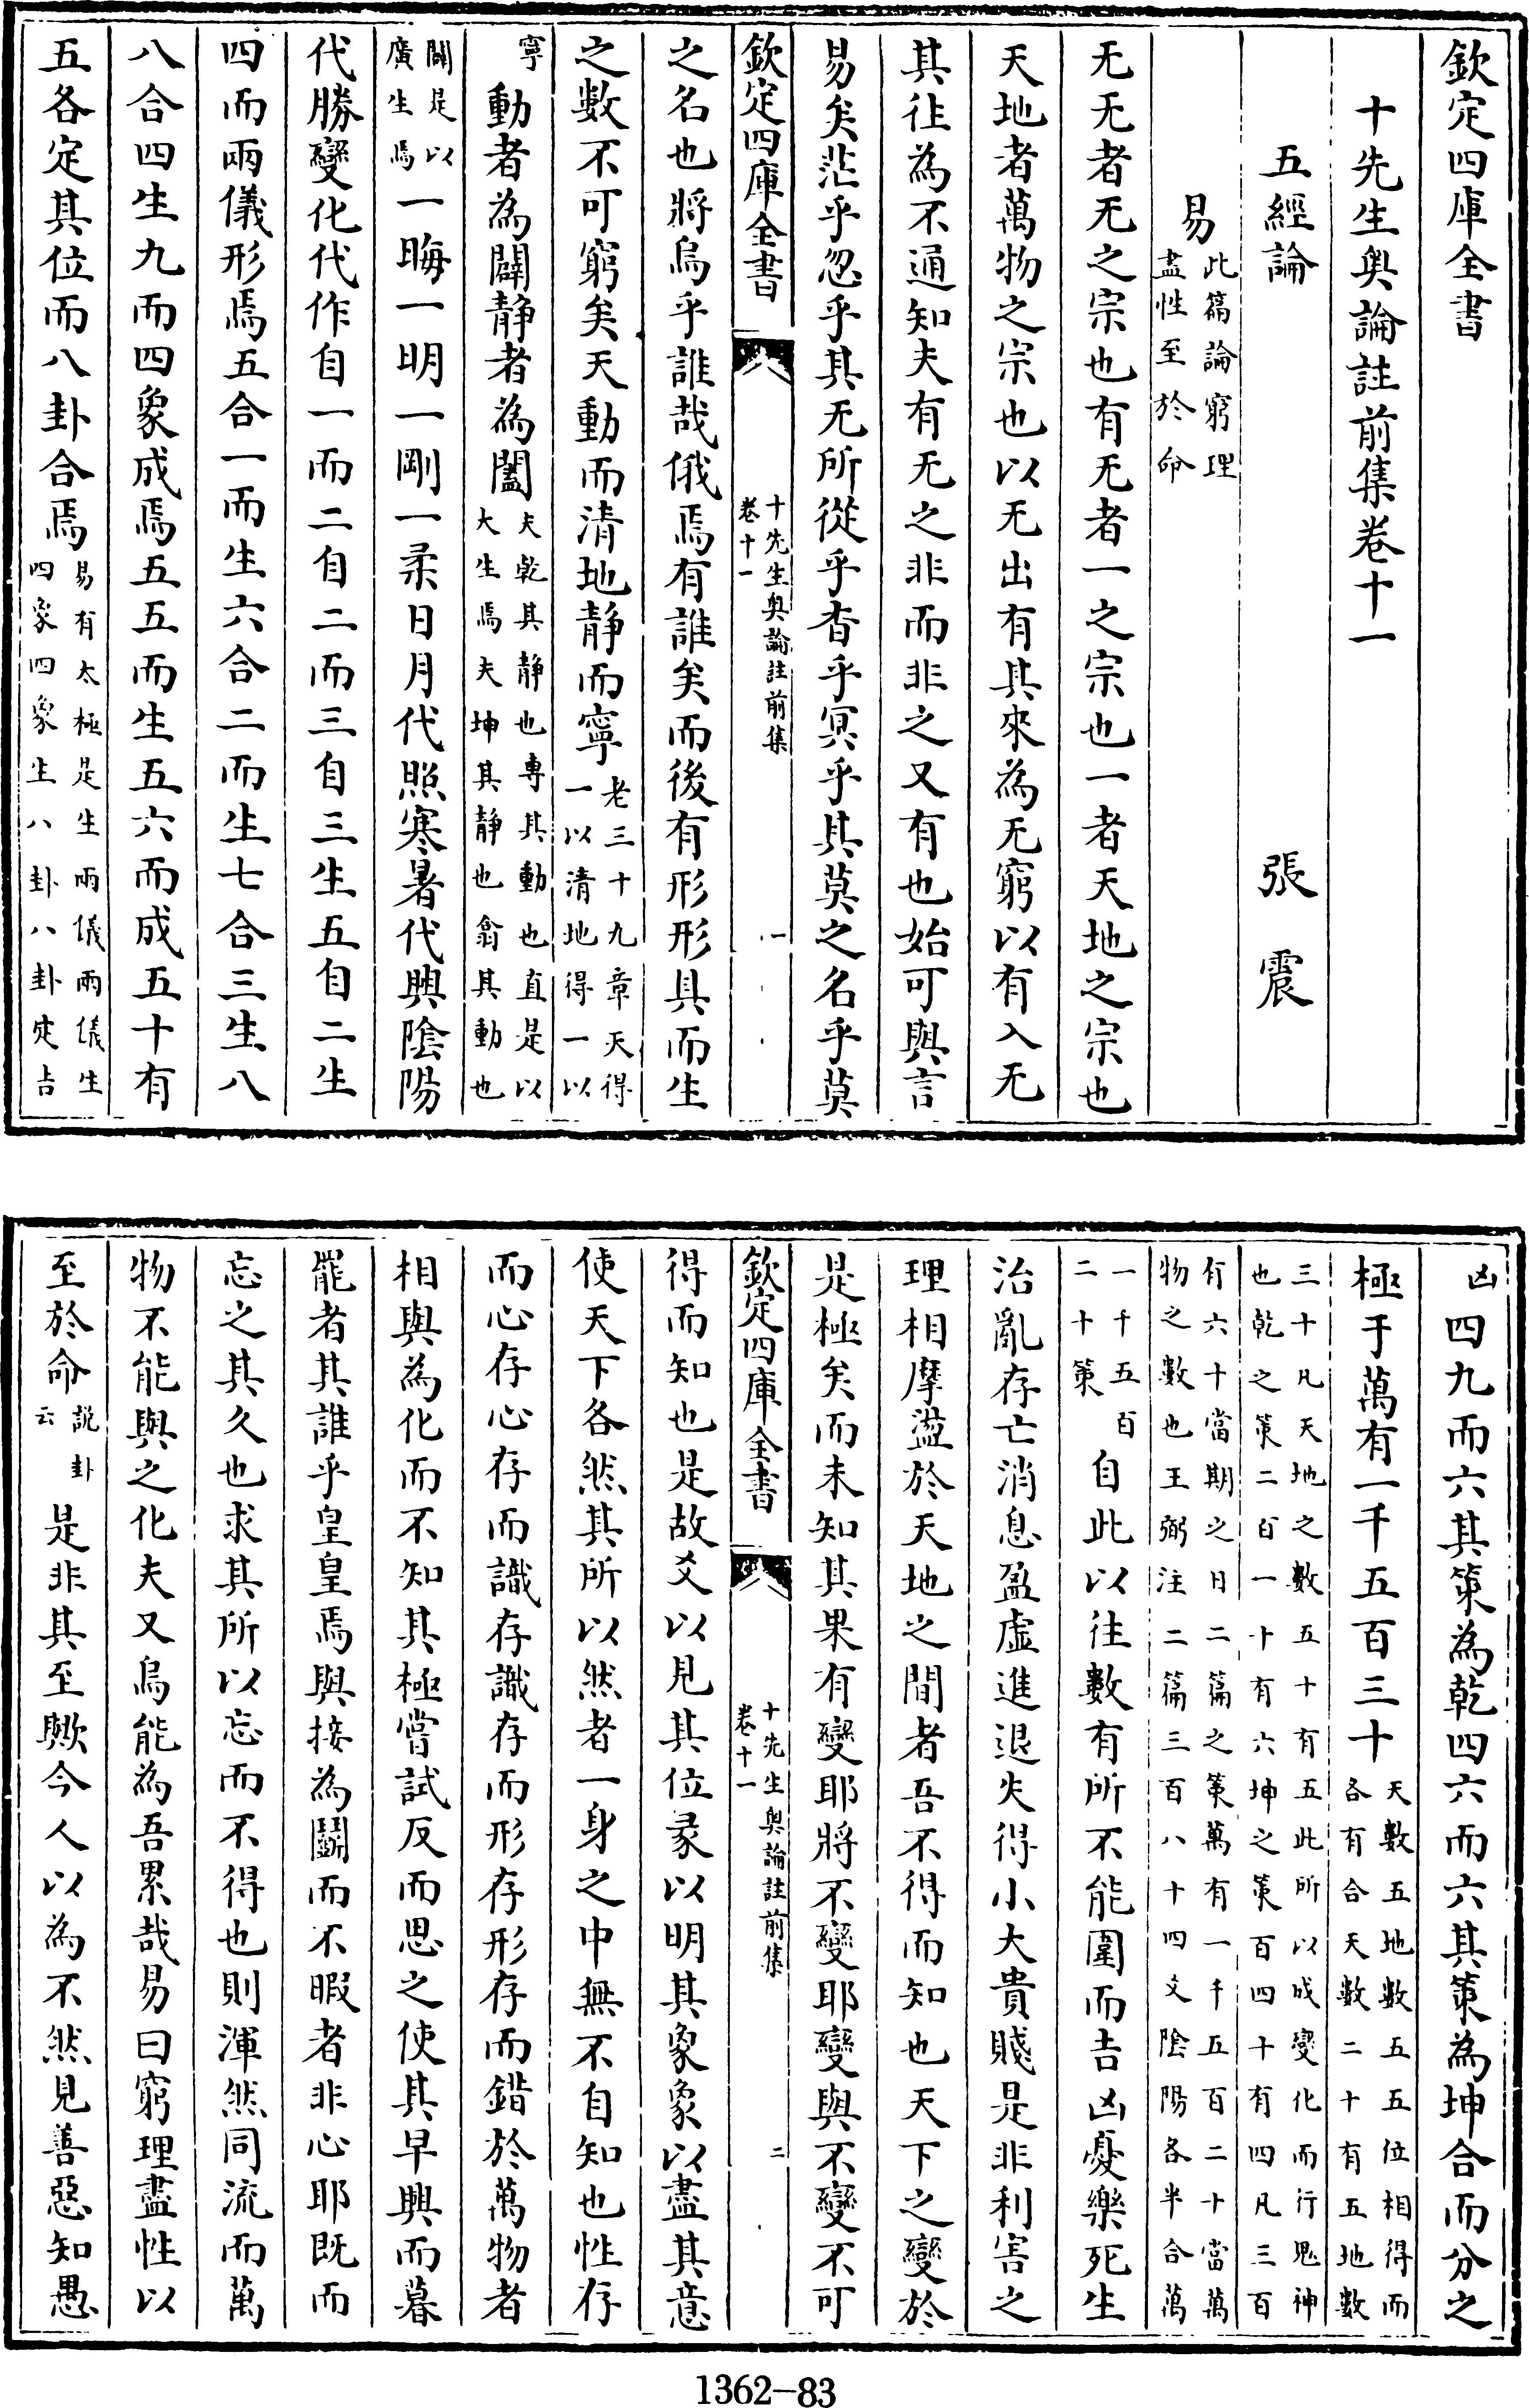 欽定四庫全書
十先生奧論註前集卷十一
五經論　張震
易此篇論窮理盡性至於命
无无者无之宗也有无者一之宗也一者天地之宗也
天地者萬物之宗也以无出有其來為无窮以有入无
其往為不通知夫有无之非而非之又有也始可與言
易矣茫乎忽乎其无所從乎杳乎冥乎其莫之名乎莫
欽定四庫全書　十先生奧論註前集卷十一　一
之名也將烏乎誰哉俄焉有誰矣而後有形形具而生
之數不可窮矣天動而清地静而寧老三十九章天得一以清地得一以
寧動者為闢静者為闔夫乾其静也專其動也直是以大生焉夫坤其静也翕其動也
闢是以廣生焉一晦一明一剛一柔日月代照寒暑代興陰陽
代勝變化代作自一而二自二而三自三生五自二生
四而兩儀形焉五合一而生六合二而生七合三生八
八合四生九而四象成焉五五而生五六而成五十有
五各定其位而八卦合焉易有太極是生兩儀兩儀生四象四象生八卦八卦定吉
凶四九而六其策為乾四六而六其策為坤合而分之
極于萬有一千五百三十天數五地數五五位相得而各有合天數二十有五地數
三十凡天地之數五十有五此所以成變化而行鬼神也乾之策二百一十有六坤之策百四十有四凡三百
有六十當期之日二篇之策萬有一千五百二十當萬物之數也王弼注二篇三百八十四爻陰陽各半合萬
一千五百二十策自此以往數有所不能圍而吉凶憂樂死生
治亂存亡消息盈虛進退失得小大貴賤是非利害之
理相摩盪於天地之間者吾不得而知也天下之變於
是極矣而未知其果有變耶將不變耶變與不變不可
欽定四庫全書　十先生奧論註前集卷十一　二
得而知也是故爻以見其位彖以明其象象以盡其意
使天下各然其所以然者一身之中無不自知也性存
而心存心存而識存識存而形存形存而錯於萬物者
相與為化而不知其極嘗試反而思之使其早興而暮
罷者其誰乎皇皇焉與接為鬭而不暇者非心耶既而
忘之其久也求其所以忘而不得也則渾然同流而萬
物不能與之化夫又烏能為吾累哉易曰窮理盡性以
至於命說卦云是非其至歟今人以為不然見善惡知愚
1362-83